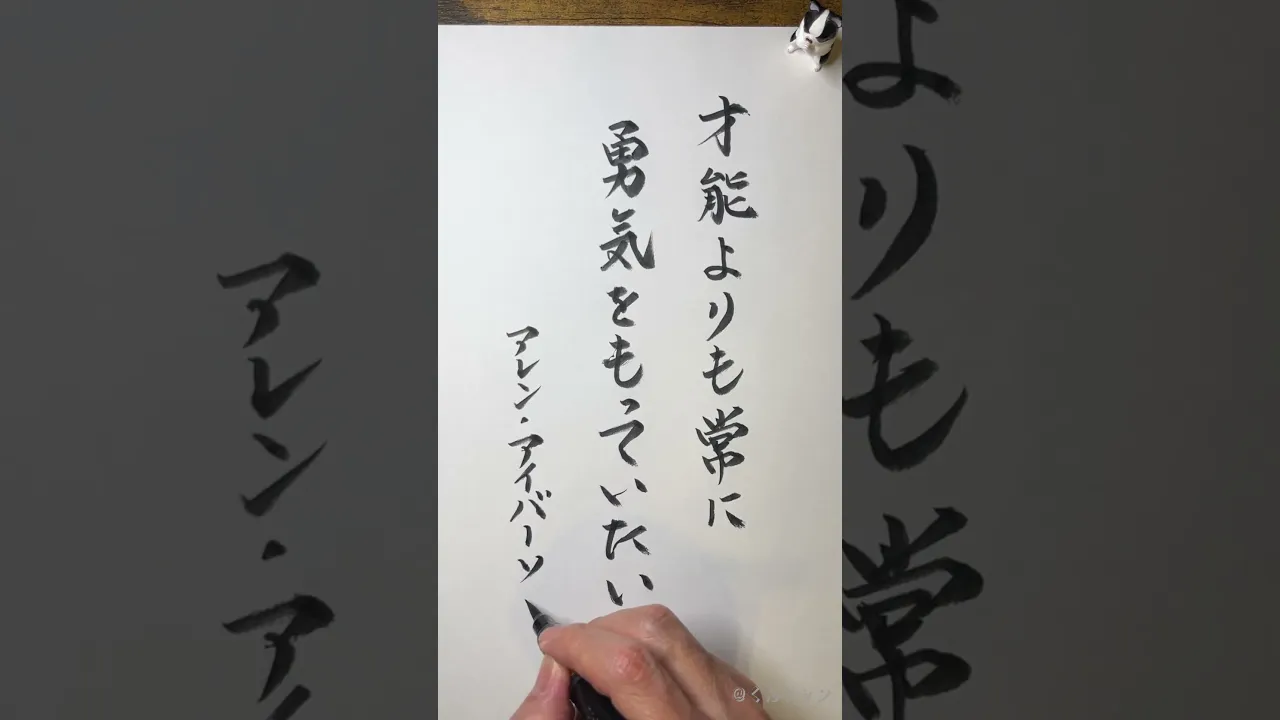 才能よりも常に
勇気をもっていたい
アレン・アイバーソ